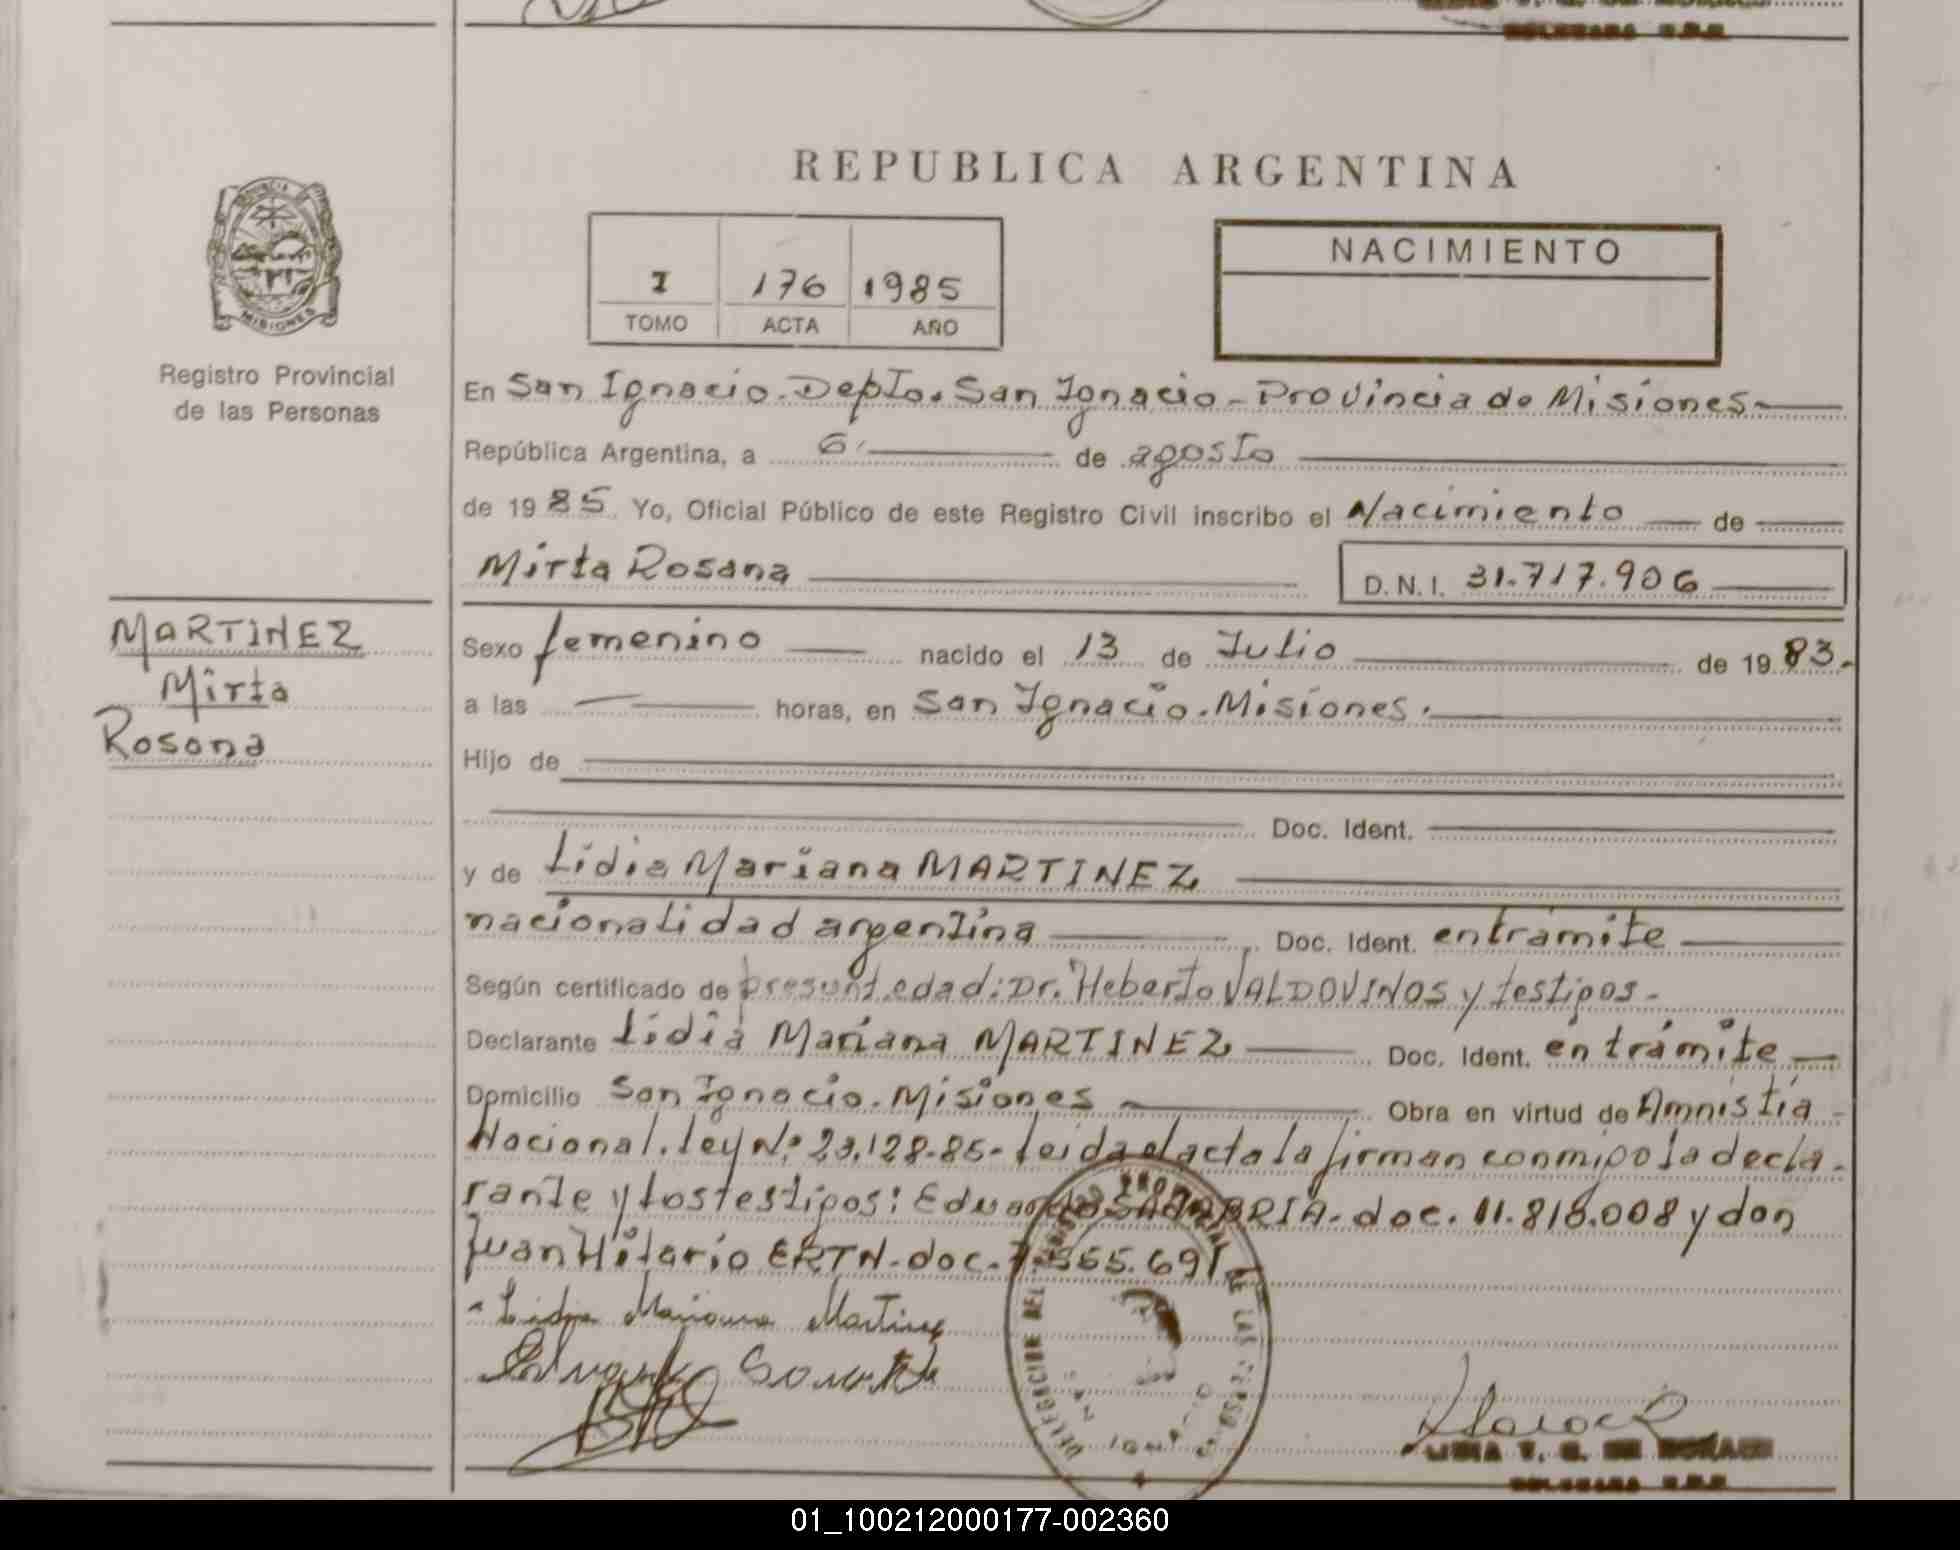 REPUBLICA ARGENTINA
PROVINCIA
MISIONES
Registro Provincial
de las Personas
I 176 1985
TOMO ACTA AÑO
NACIMIENTO
En San Ignacio. Depto. San Ignacio - Provincia de Misiones
República Argentina, a 6 de agosto
de 1985 Yo, Oficial Público de este Registro Civil inscribo el Nacimiento de
Mirta Rosana D.N.I. 31.717.906
MARTINEZ
Mirta
Rosana
Sexo femenino nacido el 13 de Julio de 1983.
a las horas, en San Ignacio. Misiones.
Hijo de
Doc. Ident.
y de Lidia Mariana MARTINEZ
nacionalidad argentina Doc. Ident. entrámite
Según certificado de presunt. edad: Dr. Heberto VALDOVINOS y testigos.
Declarante Lidia Mariana MARTINEZ Doc. Ident. en trámite
Domicilio San Ignacio. Misiones Obra en virtud de Amnistía
Nacional. ley Nº 23.128-85- leida el acta la firman conmigo la decla-
rante y los testigos: Eduardo doc. 11.818.008 y don
Juan Hilario ERTN. doc. 7.555.691
Lidia Mariana Martinez
DELEGACION DEL REGISTRO PROVINCIAL DE LAS PERSONAS
SAN IGNACIO
DELEGADA R.P.P.
01_100212000177-002360